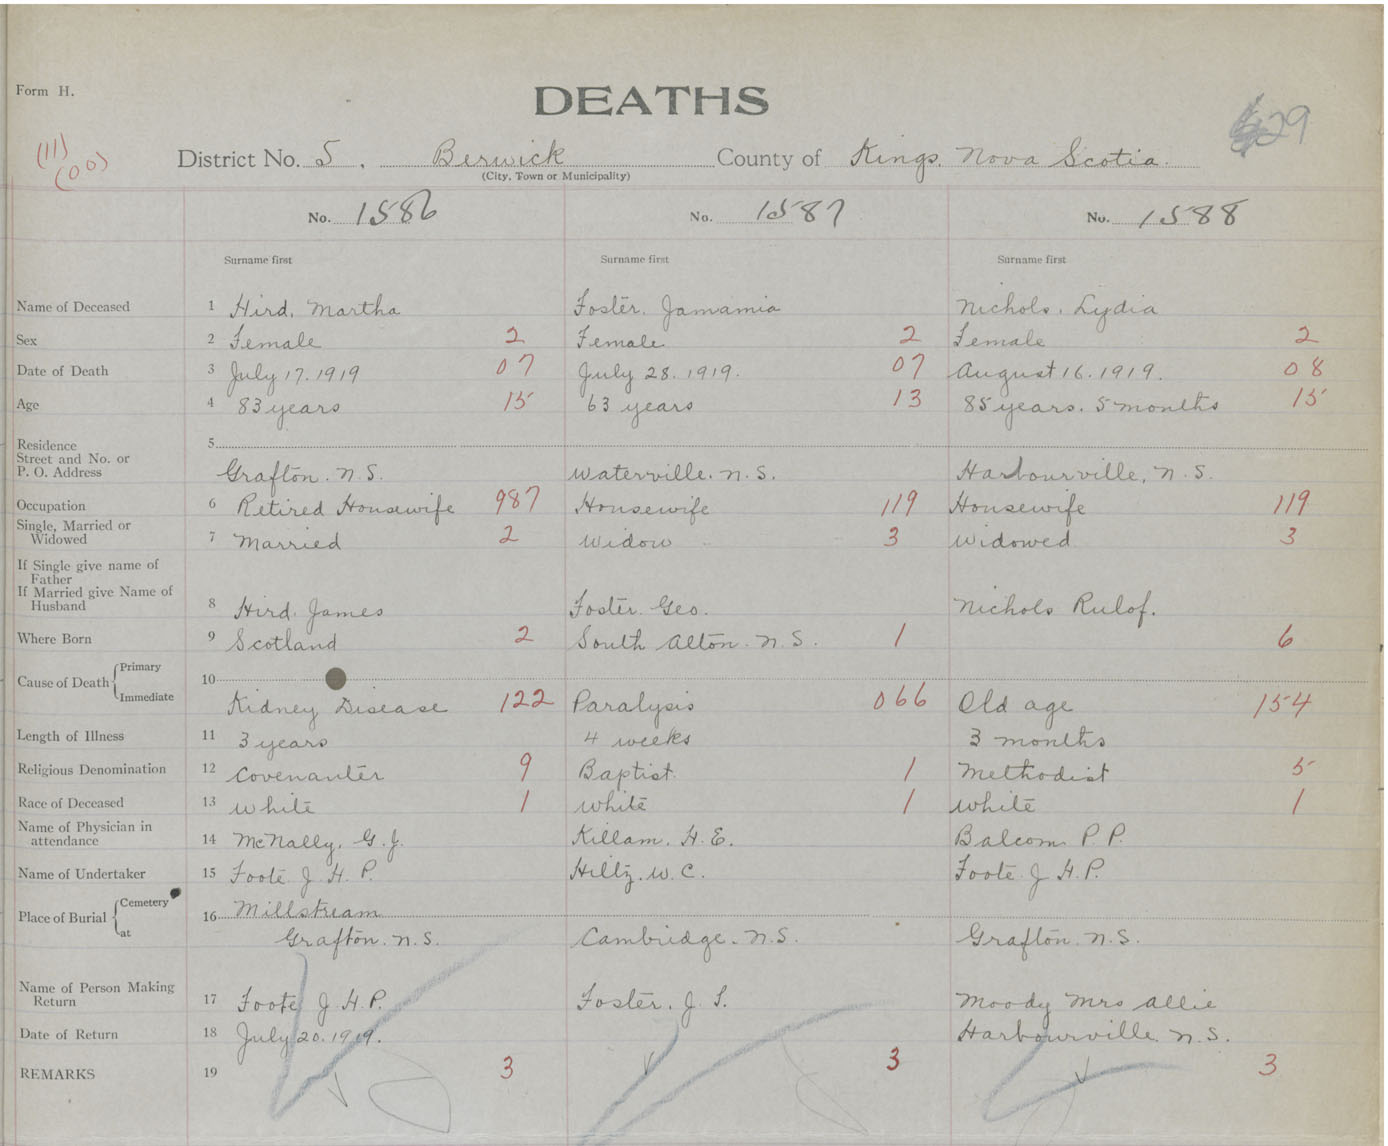 Form H.
DEATHS
29
(11)
(00)
District No. 5. Berwick County of Kings, Nova Scotia.
(City, Town or Municipality)
No. 1586 No. 1587 No. 1588
Surname first Surname first Surname first
Name of Deceased 1 Hird, Martha Foster, Jamamia Nichols, Lydia
Sex 2 Female 2 Female 2 Female 2
Date of Death 3 July 17.1919 07 July 28.1919. 07 August 16.1919. 08
Age 4 83 years 15 63 years 13 85 years. 5 months 15
Residence 5
Street and No. or
P. O. Address Grafton. N.S. Waterville. N.S. Harbourville, N.S.
Occupation 6 Retired Housewife 987 Housewife 119 Housewife 119
Single, Married or
Widowed 7 Married 2 Widow 3 Widowed 3
If Single give name of
Father
If Married give Name of
Husband 8 Hird, James Foster. Geo. Nichols Rulof.
Where Born 9 Scotland 2 South Alton. N.S. 1 6
Cause of Death Primary 10
Immediate Kidney Disease 122 Paralysis 066 Old age 154
Length of Illness 11 3 years 4 weeks 3 months
Religious Denomination 12 Covenanter 9 Baptist. 1 Methodist 5
Race of Deceased 13 White 1 White 1 White 1
Name of Physician in
attendance 14 McNally, G.J. Killam, H.E. Balcom P.P.
Name of Undertaker 15 Foote J.H.P. Hiltz, W.C. Foote J H.P.
Place of Burial Cemetery 16 Millstream
at Grafton. N.S. Cambridge. N.S. Grafton. N.S.
Name of Person Making
Return 17 Foote J.H.P. Foster, J. Moody Mrs Allie
Date of Return 18 July 20.1919. Harbourville. N.S.
REMARKS 19 3 3 3